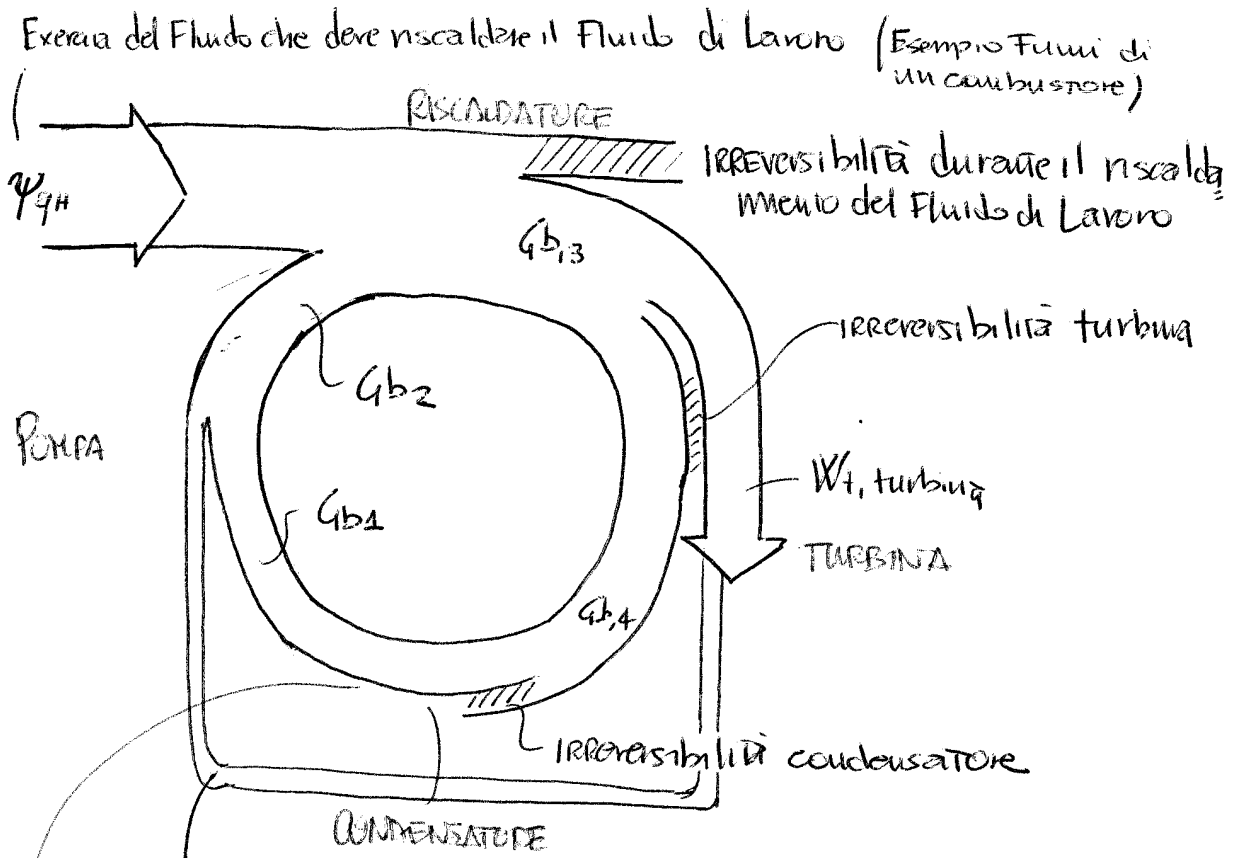 Exergia del Fluido che deve riscaldare il Fluido di Lavoro (Esempio Fumi di
un combustore)
RISCALDATORE
IRREVERSIBILITÀ durante il riscalda
mento del Fluido di Lavoro
ΨqH
Gb,3
irreversibilità turbina
Gb2
POMPA
Wt, turbina
Gb1
TURBINA
Gb,4
IRREVERSIBILITÀ condensatore
CONDENSATORE